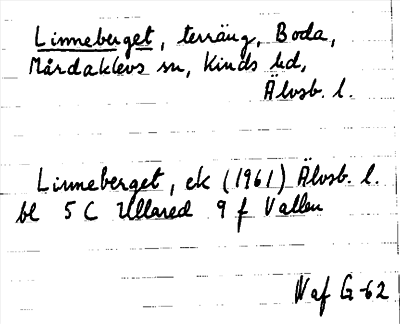 Linneberget, terräng, Boda,
Mårdaklevs sn, Kinds hd,
Älvsb. l.
Linneberget, ek (1961) Älvsb. l.
bl 5 C Ullared 9 f Vallen
Naf G-62